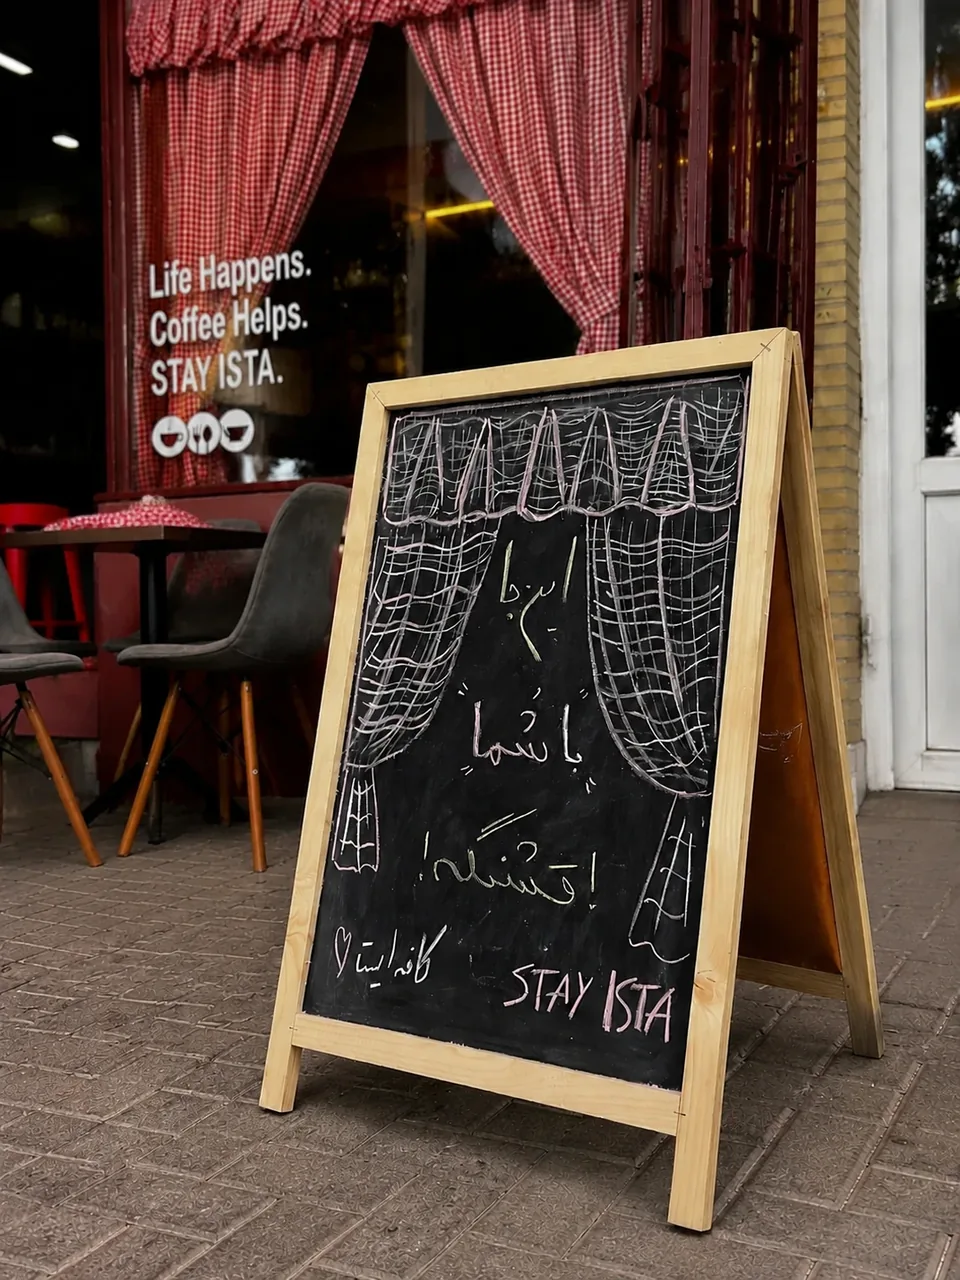 Life Happens.
Coffee Helps.
STAY ISTA.
اینجا
با شما
قشنگه!
کافه ایستا
STAY ISTA